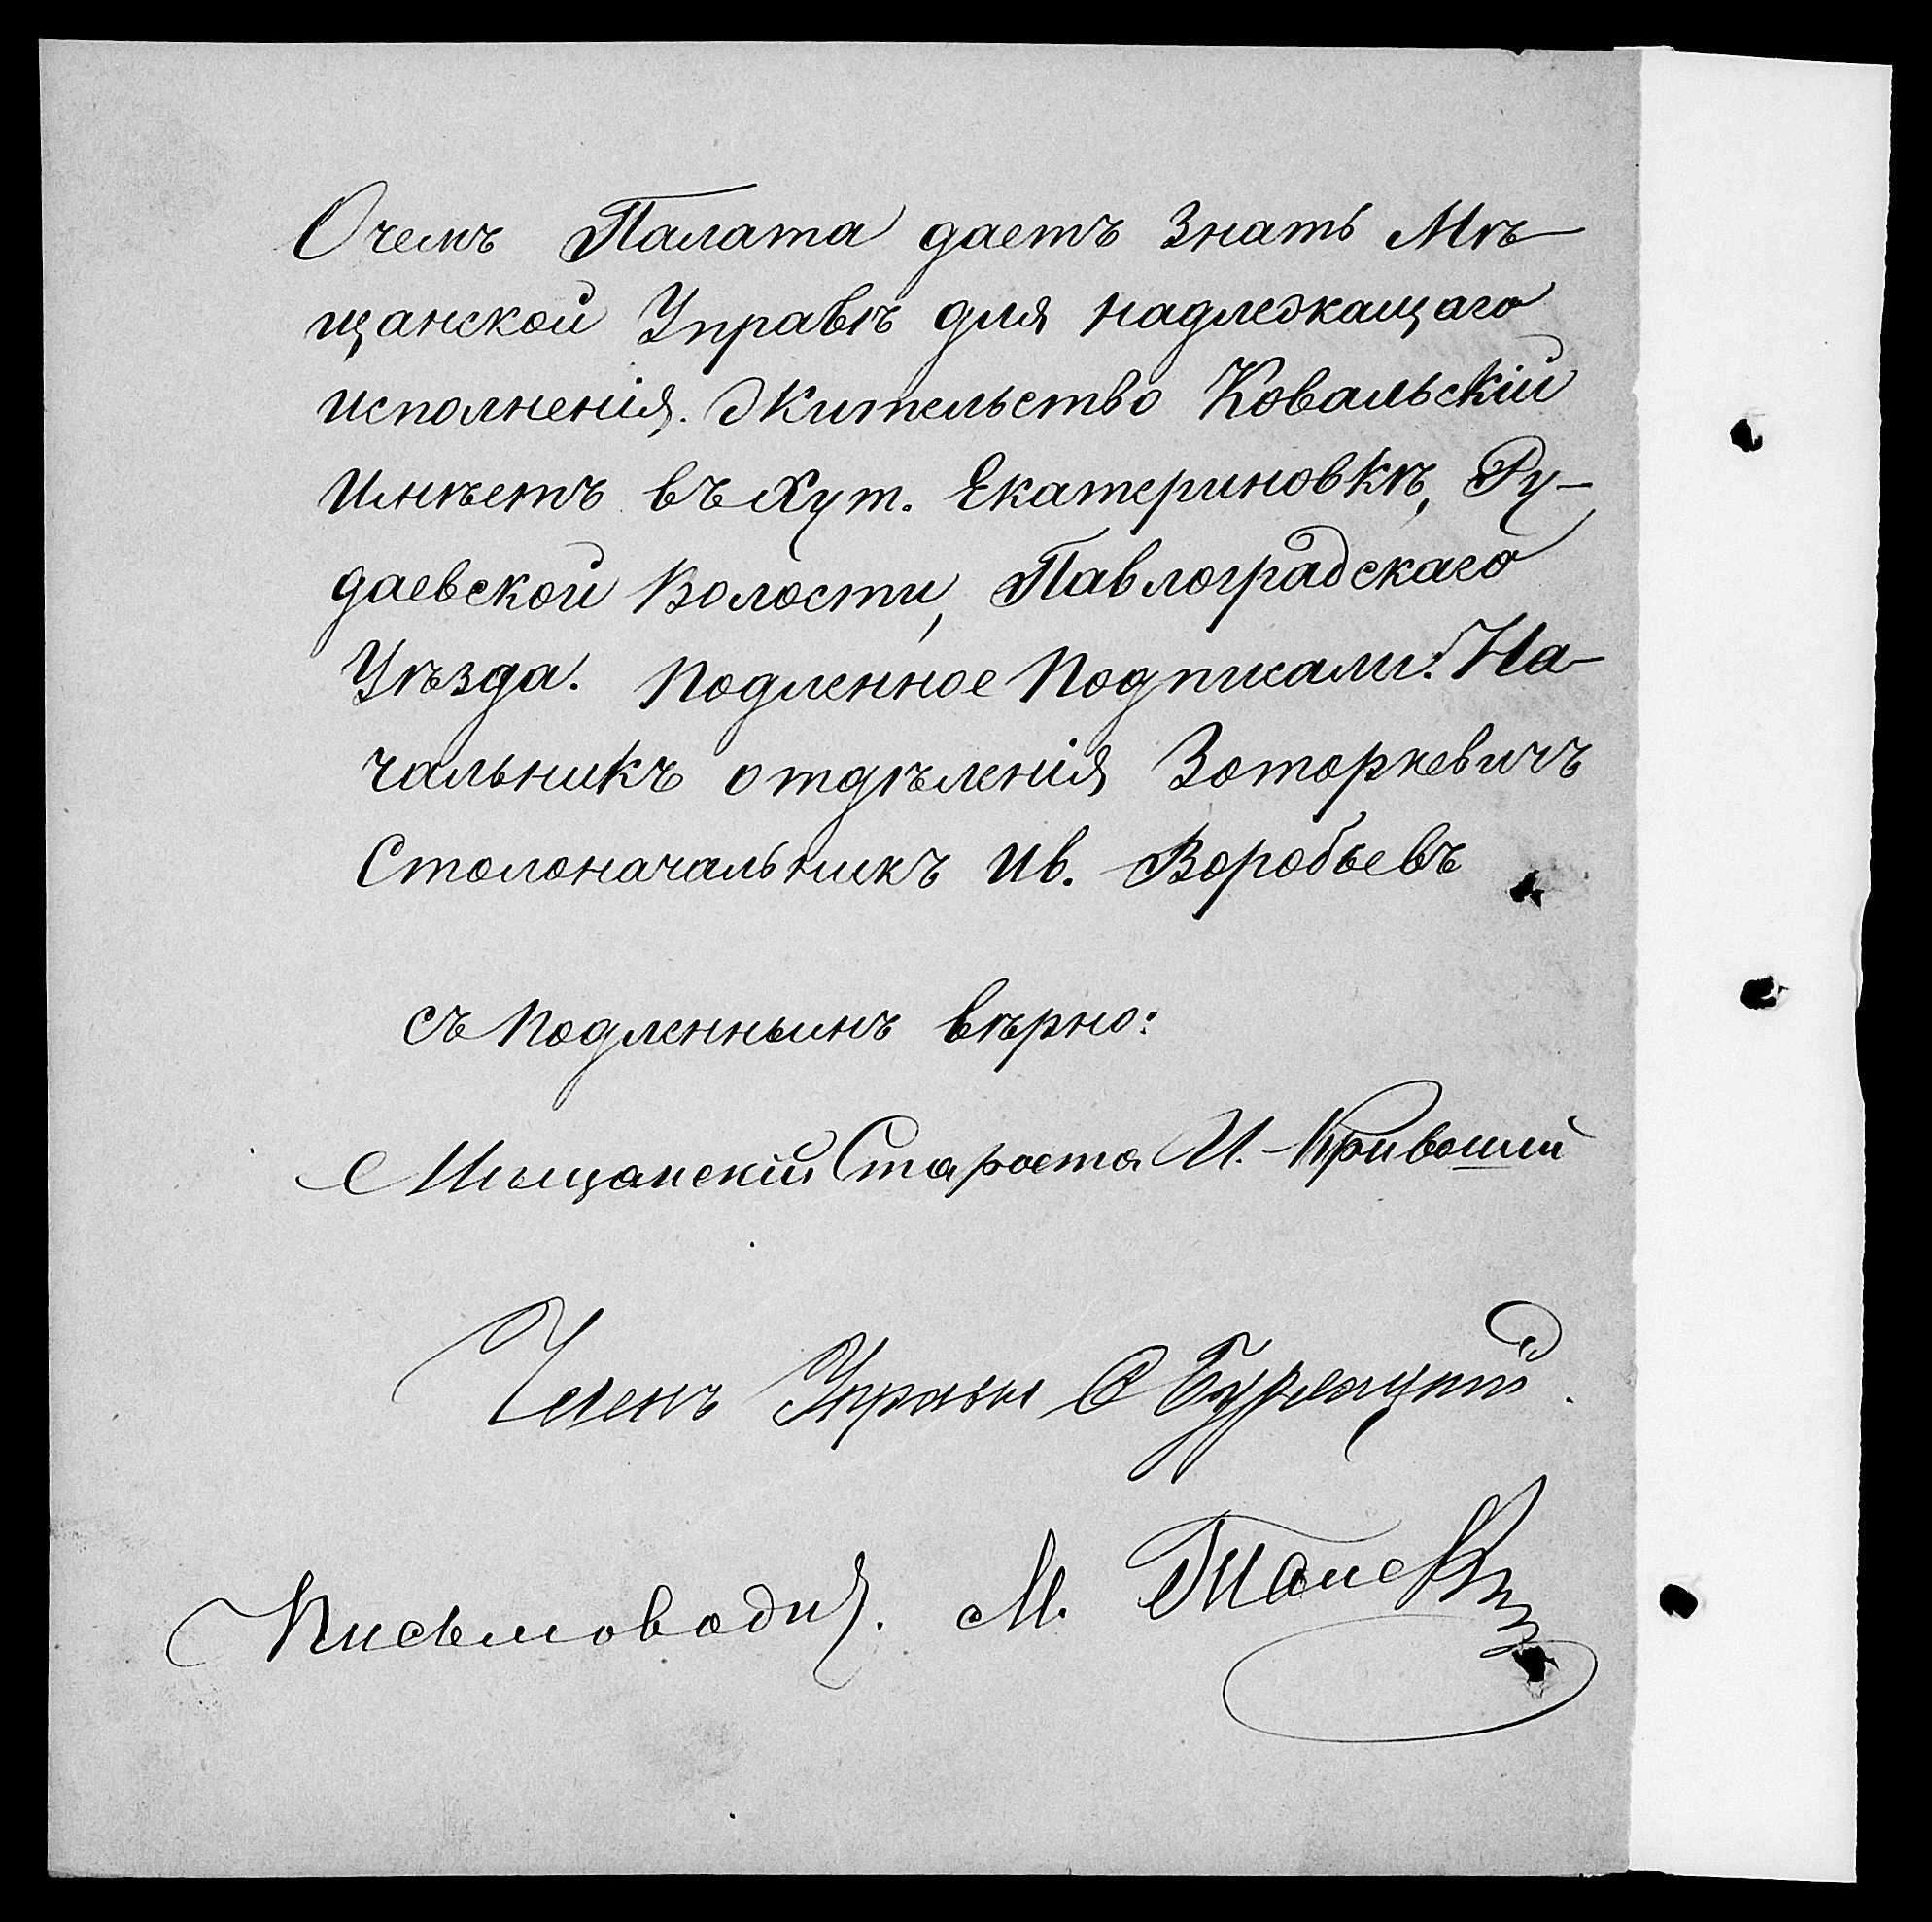 Очемъ Палата даетъ знать Мѣ-
щанской Управѣ для надлежащаго
исполненія. Жительство Ковальскій
имѣетъ въ хут. Екатериновкѣ, Ру-
даевской Волости, Павлоградскаго
Уѣзда. Подленное Подписали: На-
чальникъ отдѣленія
Столоначальникъ Ив. Воробьевъ
съ Подленнымъ вѣрно:
Мѣщанскій Староста И. Кривоший
Членъ Управы
Письмоводи. М.